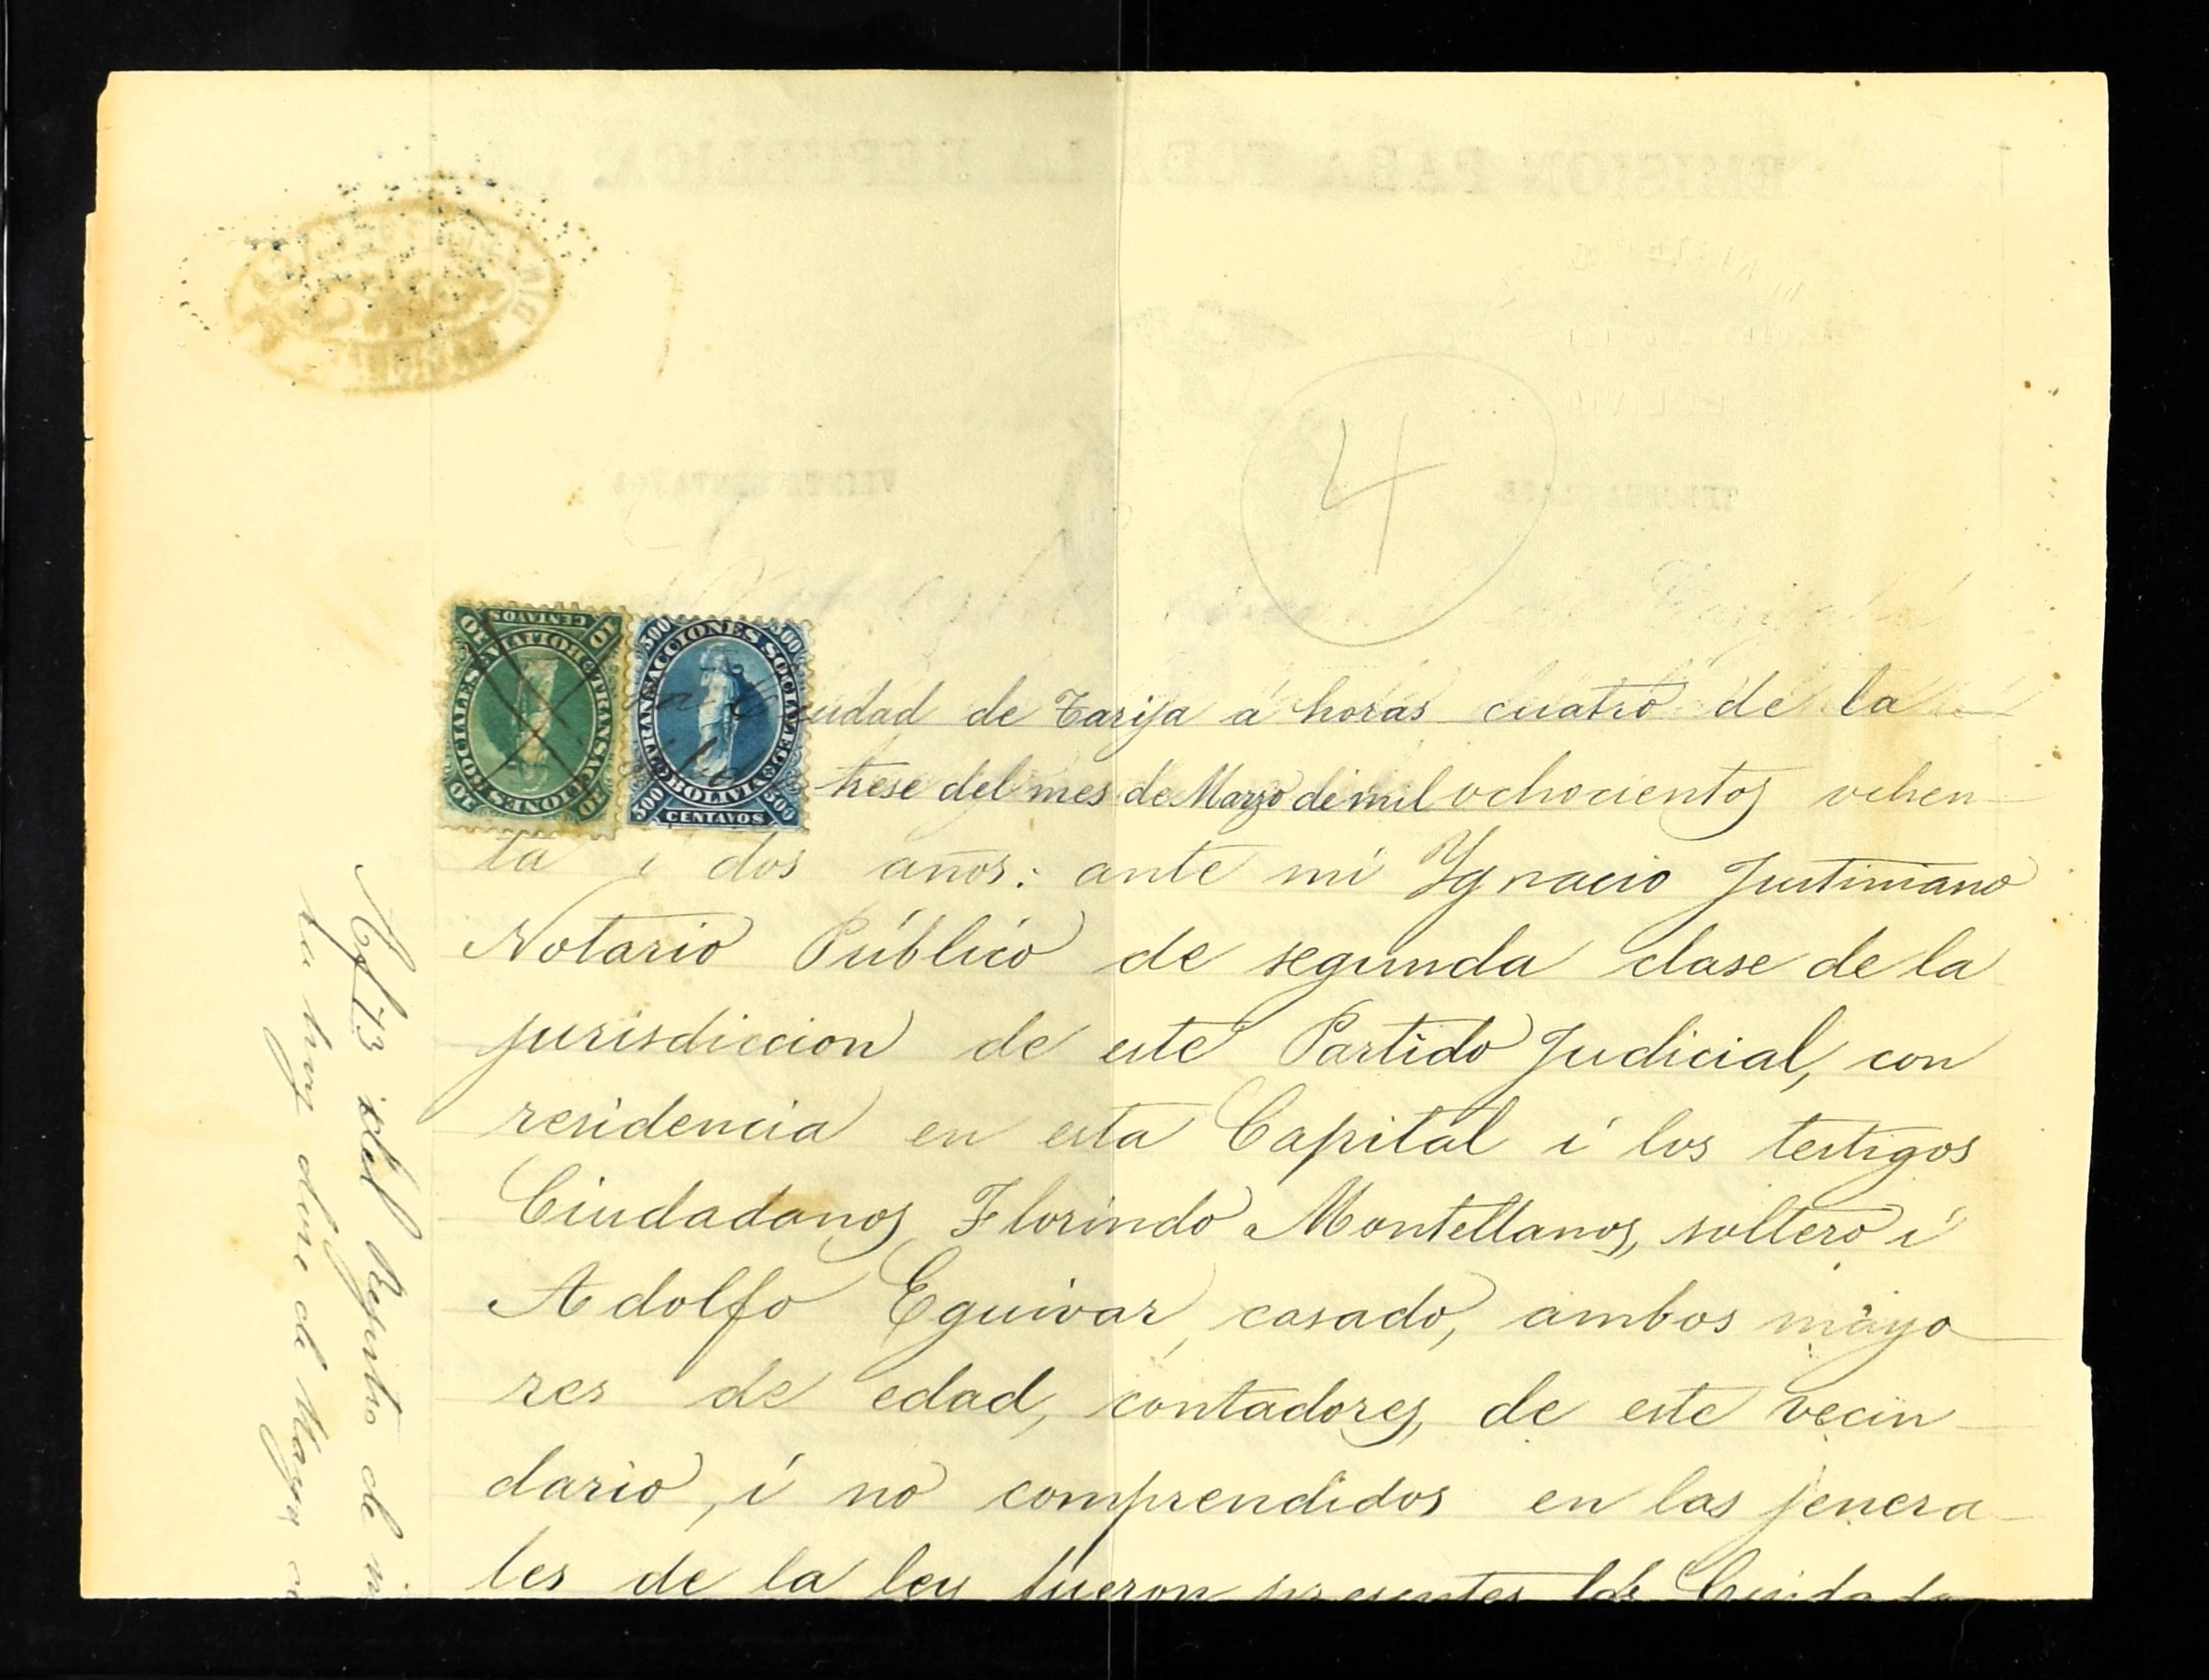 4
10 CENTAVOS 10
TRANSACCIONES SOCIALES
BOLIVIA
10 10
500 500
TRANSACCIONES SOCIALES
BOLIVIA
500 CENTAVOS 500
iudad de Tarija á horas cuatro de la
trese del mes de Marzo de mil ochocientos ochen
ta i dos años: ante mi Ygnacio Justiniano
Notario Público de segunda clase de la
jurisdiccion de este Partido Judicial, con
residencia en esta Capital i los testigos
Ciudadanos Florindo Montellanos, soltero i
Adolfo Eguivar, casado, ambos mayo
res de edad, contadores, de este vecin
dario, i no comprendidos en las jenera
les de la ley fueron presentes los Ciudada
del Registro de
doce de